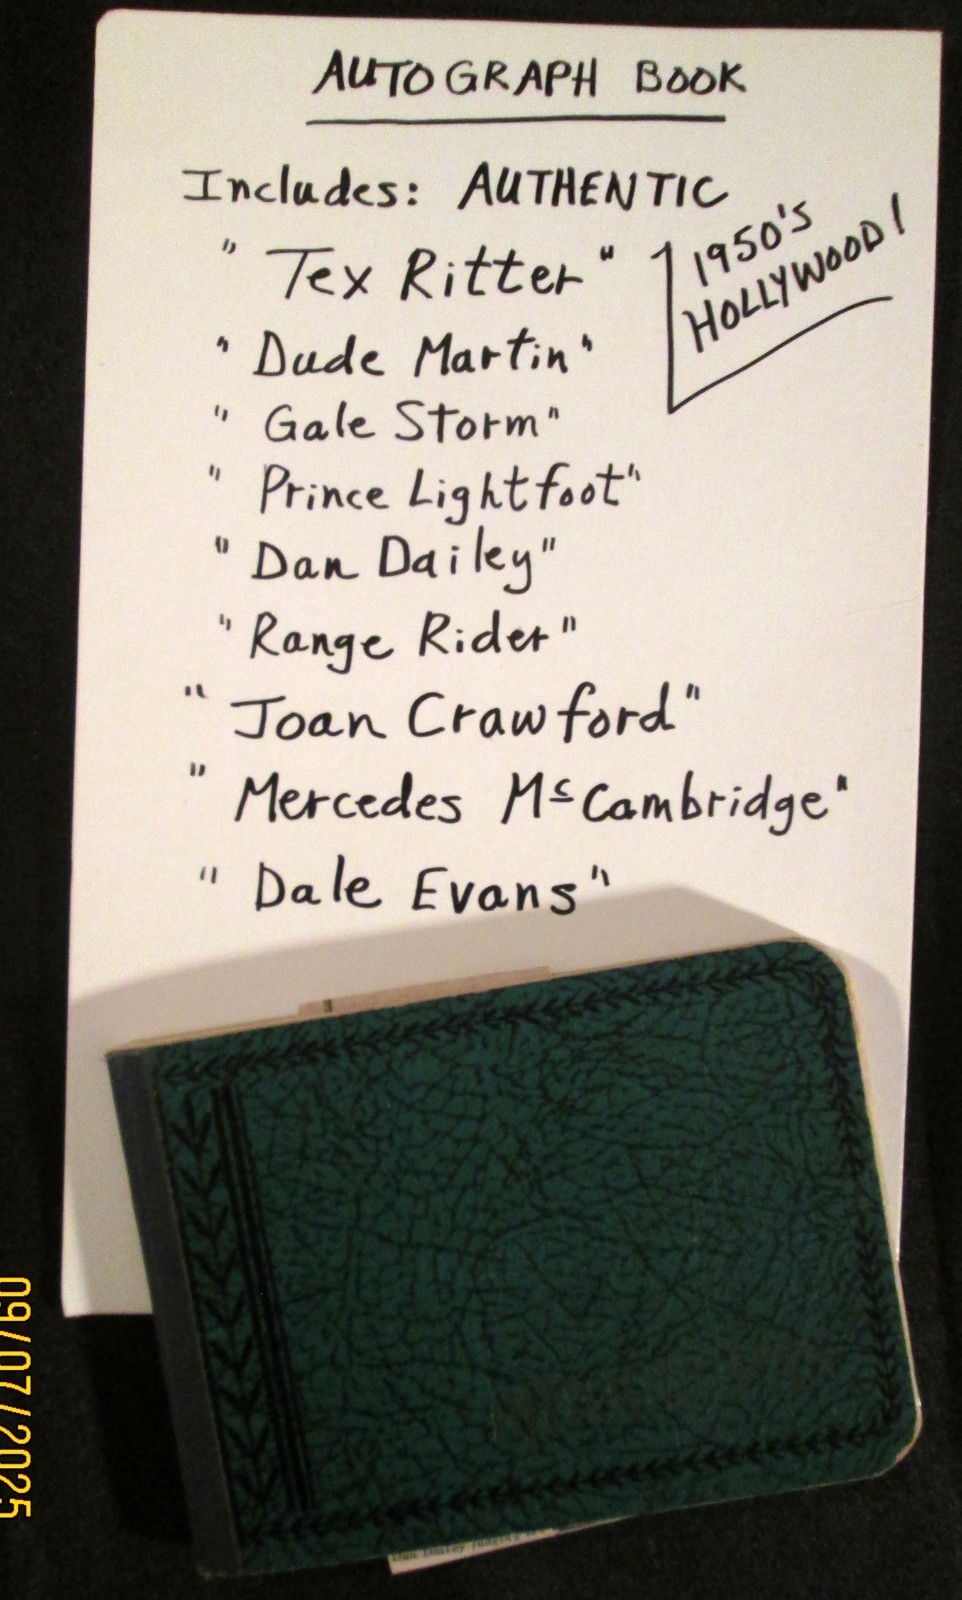 AUTOGRAPH BOOK
Includes: AUTHENTIC
"Tex Ritter"
1950'S
HOLLYWOOD!
"Dude Martin"
"Gale Storm"
"Prince Lightfoot"
"Dan Dailey"
"Range Rider"
"Joan Crawford"
"Mercedes McCambridge"
"Dale Evans"
Dan Dailey
09/07/2025